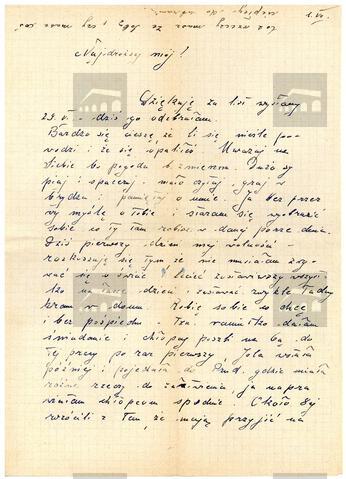 1. VI.
Najdroższy mój!
Dziękuję za list wysłany
29. V. — dziś go odebrałam.
Bardzo się cieszę że Ci się nieźle po-
wodzi i że się opaliłeś. Uważaj na
siebie bo pogoda b. zmienna. Dużo sy-
piaj i spaceruj mało czytaj graj w
brydża i pamiętaj o mnie. Ja bez przer
wy myślę o Tobie i staram się wyobrazić
sobie co Ty tam robisz w danej porze dnia.
Dziś pierwszy dzień mej wolności —
rozkoszuję się tym że nie musiałam zry-
wać się o świcie i lecieć zostawiwszy wszys-
tko na cały dzień i zostawać zwykle ładny
kram w domu. Robię sobie co chcę
i bez pośpiechu. Tzn. raniutko dałam
śniadanie i chłopcy poszli na 6tą do
tej pracy po raz pierwszy. Jola wstała
później i pojechała do Prud. gdzie miała
różne rzeczy do załatwienia ja napra
wiałam chłopcom spodnie. Około 8ej
wrócili z tam, że mają przyjść na